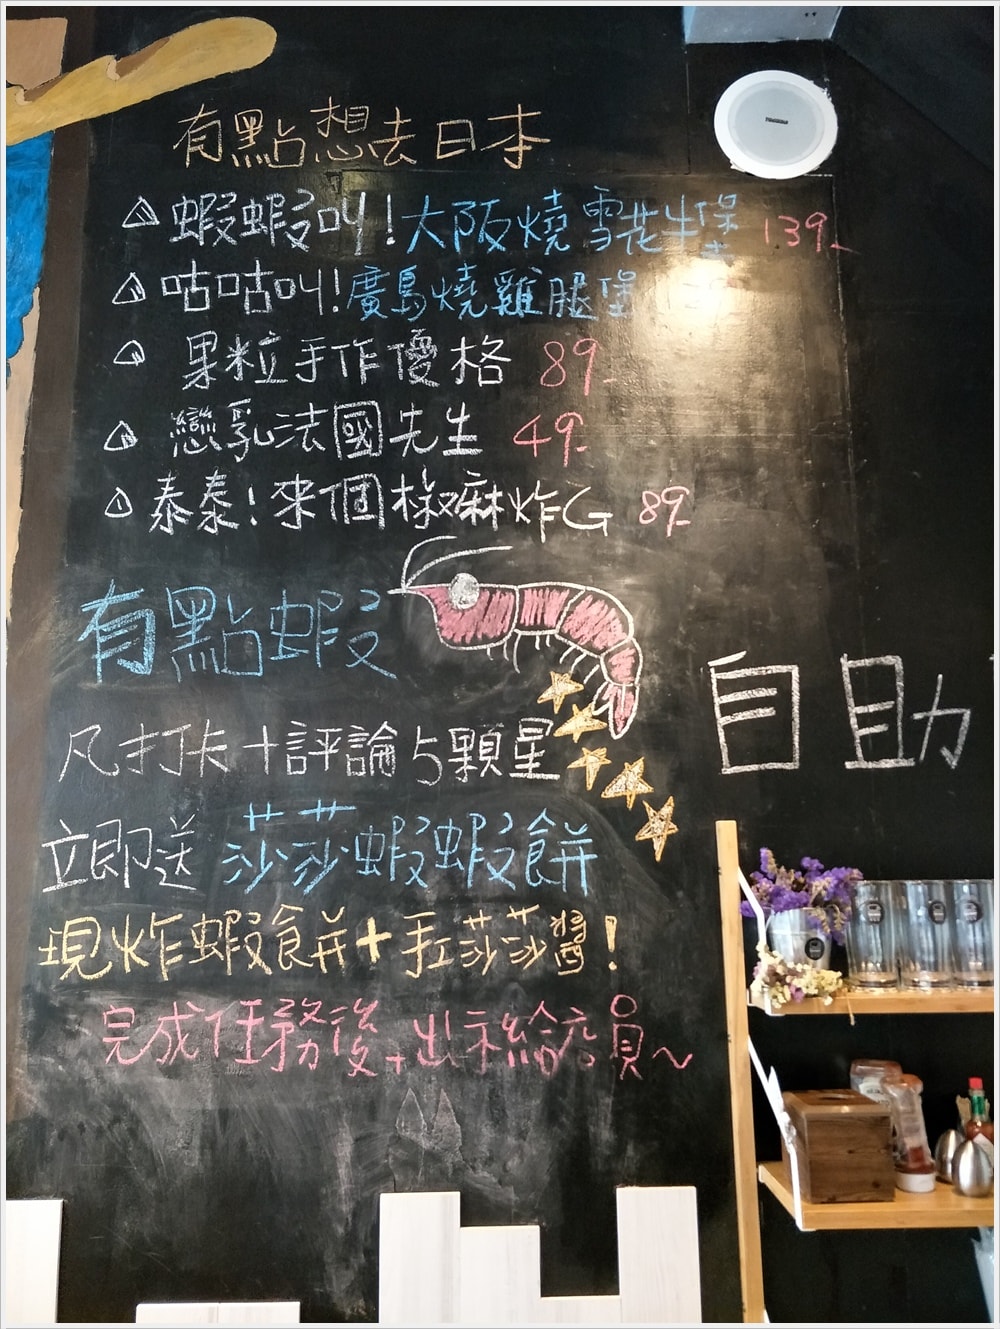 有點想去日本
蝦蝦叫!大阪燒雪花牛堡 139-
咕咕叫!廣島燒雞腿堡
果粒手作優格 89-
戀乳法國先生 49-
泰泰!來個椒麻炸G 89-
有點蝦
凡打卡+評論5顆星
立即送 莎莎蝦蝦餅
現炸蝦餅+手工莎莎醬!
完成任務後,出示給店員~
自助